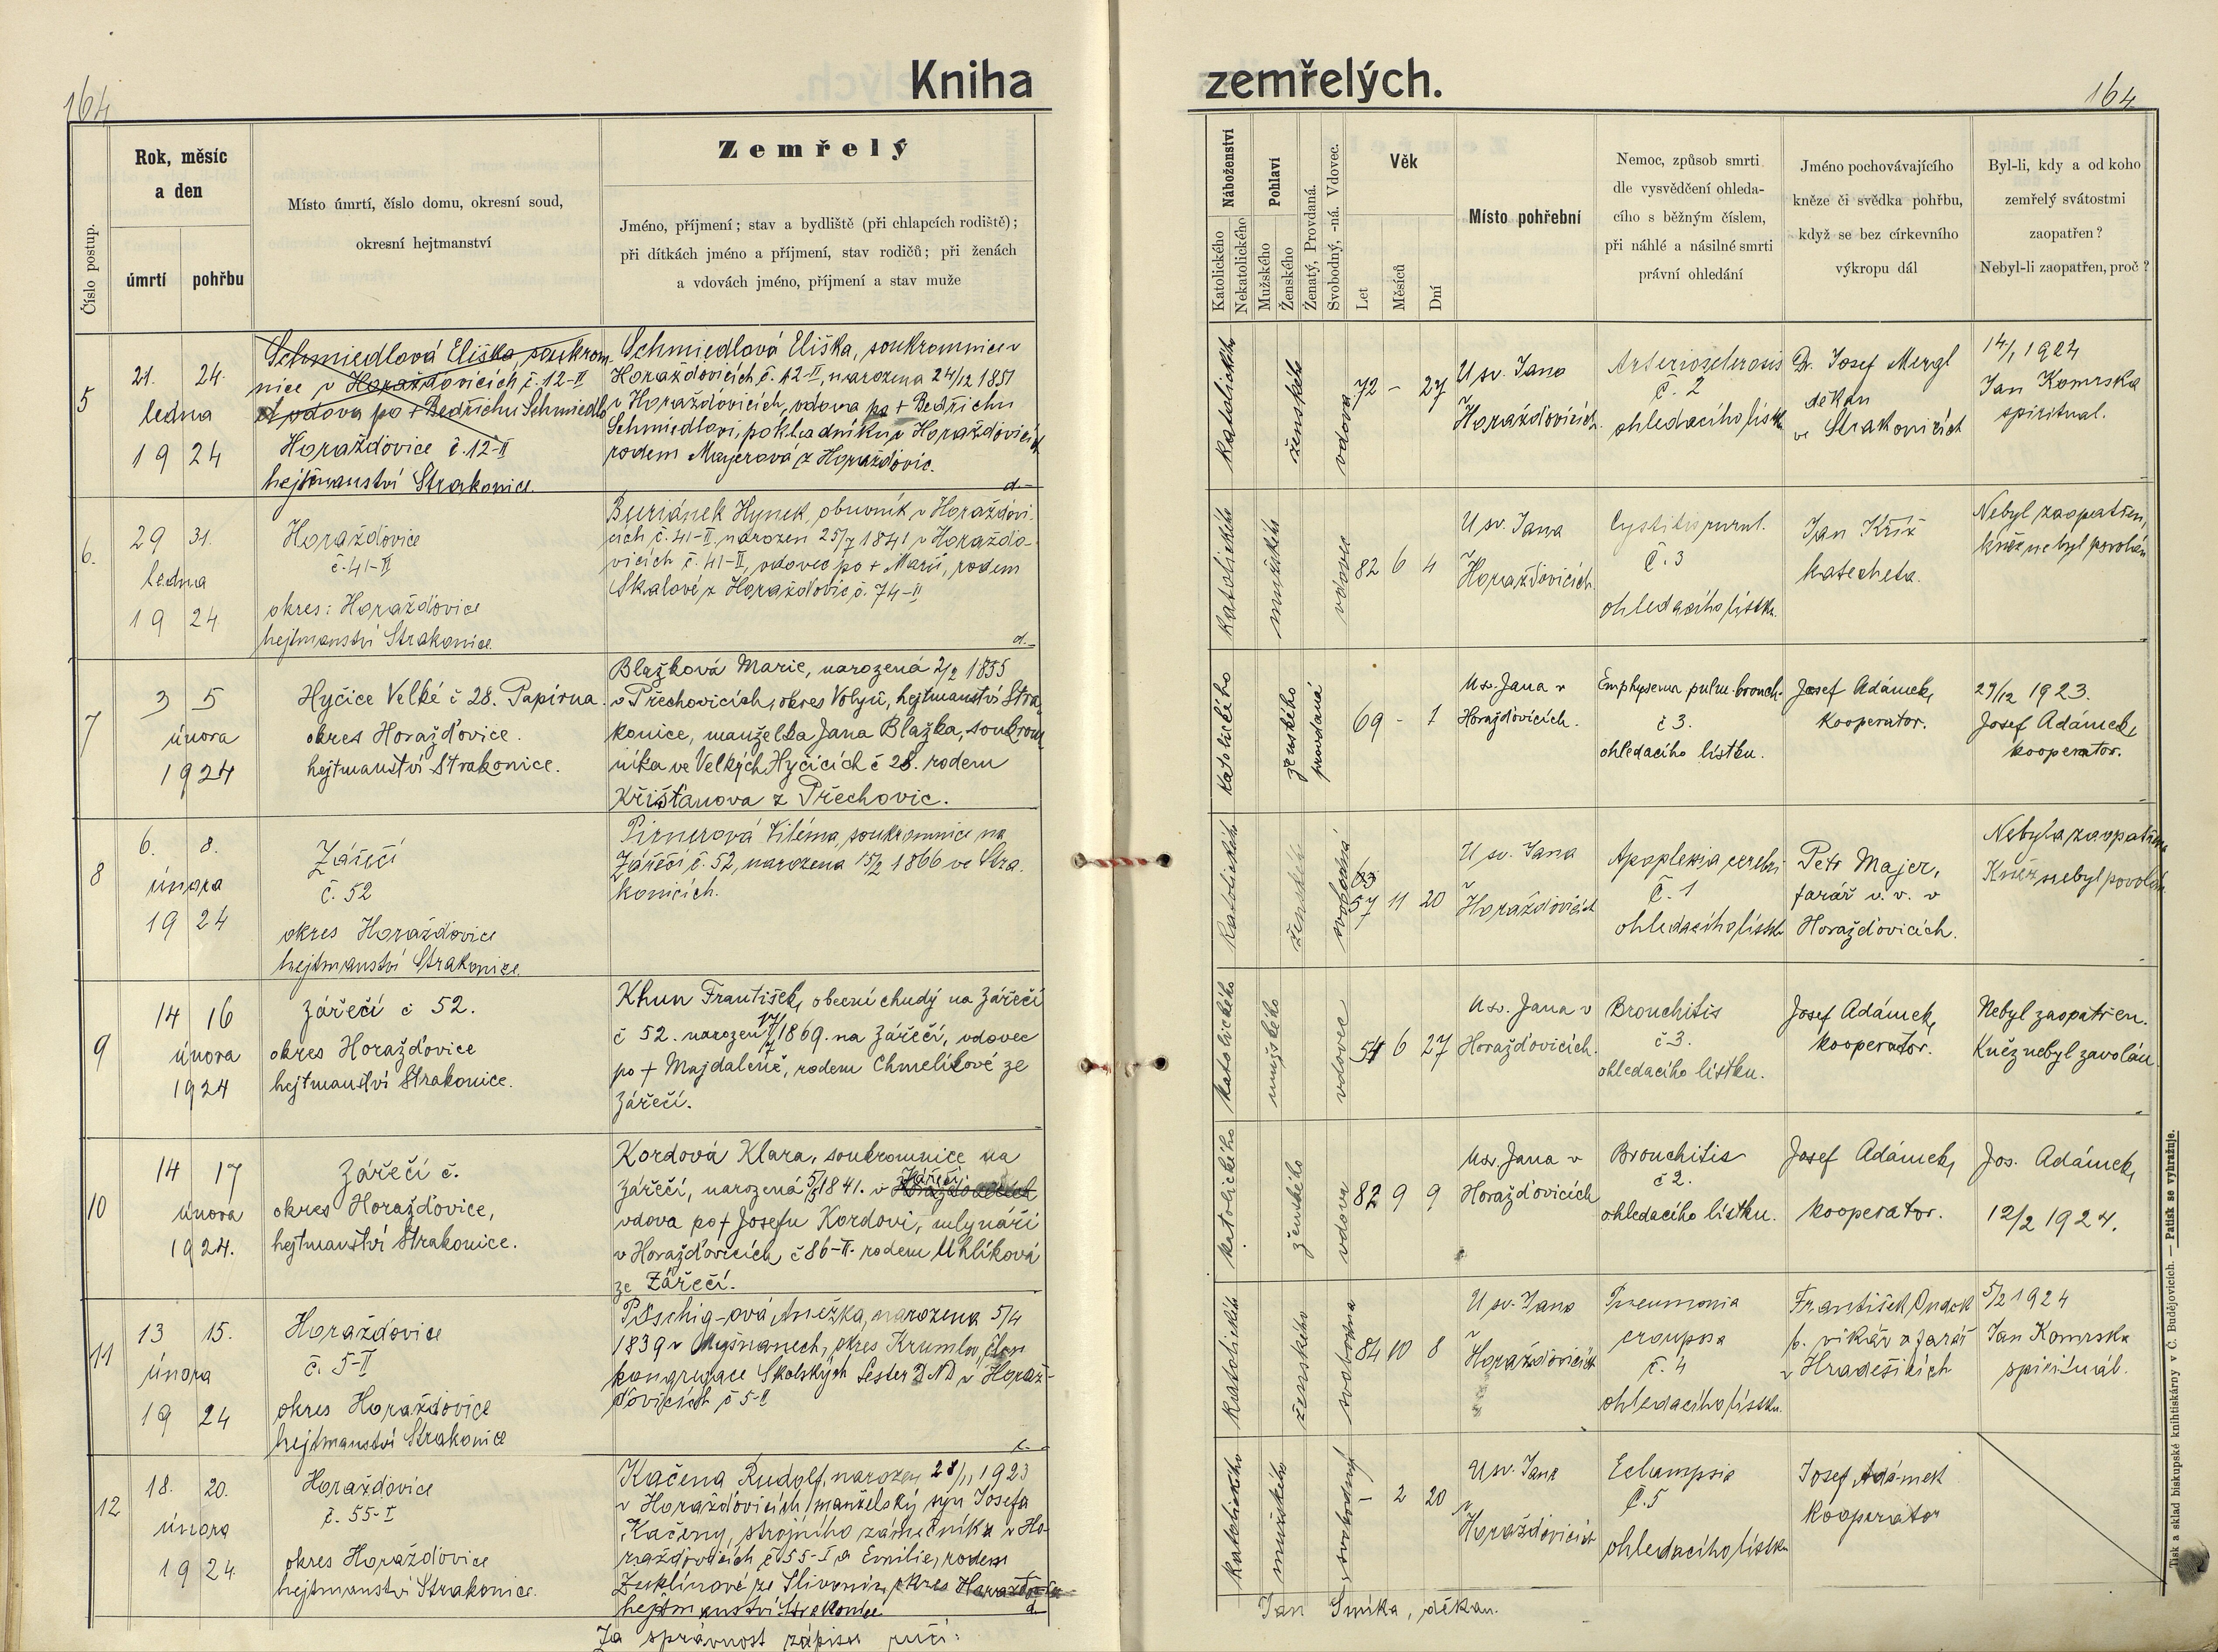 164
Kniha
Číslo postup.
Rok, měsíc
a den
úmrtí
pohřbu
Místo úmrtí, číslo domu, okresní soud,
okresní hejtmanství
Zemřelý
Jméno, příjmení; stav a bydliště (při chlapcích rodiště);
při dítkách jméno a příjmení, stav rodičů; při ženách
a vdovách jméno, příjmení a stav muže
5
21. 24.
ledna
19 24
Schmiedlová Eliška soukrom-
nice v Horažďovicích č. 12-II
vdova po + Bedřichu Schmiedlo
Horažďovice č. 12-II
hejtmanství Strakonice.
Schmiedlová Eliška, soukromnice v
Horažďovicích č. 12-II, narozena 24/12 1851
v Horažďovicích, vdova po + Bedřichu
Schmiedlovi, pokladníku v Horažďovicích
rodem Mayerová z Horažďovic.
d.
6.
29 31.
ledna
19 24.
Horažďovice
č. 41-II
okres: Horažďovice
hejtmanství Strakonice.
Buriánek Hynek, obuvník v Horažďovi-
cích č. 41-II, narozen 25/7 1841 v Horažďo-
vicích č. 41-II, vdovec po + Marii, rodem
Skalové z Horažďovic č. 74-II
d.
7
3 5
února
1924
Hyčice Velké č 28. Papírna.
okres Horažďovice.
hejtmanství Strakonice.
Blažková Marie, narozená 2/2 1855
v Přechovicích, okres Volyň, hejtmanství Stra-
konice, manželka Jana Blažka, soukrom
níka ve Velkých Hyčicích č 28. rodem
Křišťanova z Přechovic.
8
6. 8.
února
19 24
Zářečí
č. 52
okres Horažďovice
hejtmanství Strakonice.
Pirnerová Viléma, soukromnice na
Zářečí č. 52, narozena 15/2 1866 ve Stra-
konicích.
9
14 16
února
1924
Zářečí č 52.
okres Horažďovice
hejtmanství Strakonice.
Khun František, obecní chudý na Zářečí
č 52. narozen 17/7 1869. na Zářečí, vdovec
po + Majdaleně, rodem Chmelíkové ze
Zářečí.
10
14 17
února
1924.
Zářečí č.
okres Horažďovice,
hejtmanství Strakonice.
Kordová Klara, soukromnice na
Zářečí, narozená 5/5 1841. v Zářečí
vdova po + Josefu Kordovi, mlynáři
v Horažďovicích č 86-II. rodem Uhlíková
ze Zářečí.
11
13 15.
února
19 24
Horažďovice
č. 5-II
okres Horažďovice
hejtmanství Strakonice
Pöschig-ová Anežka, narozena 5/4
1839 v okres Krumlov, člen
kongregace Školských Sester D ND v Horaž-
ďovicích č 5-II
12
18. 20.
února
19 24.
Horažďovice
č. 55-I
okres Horažďovice
hejtmanství Strakonice.
Kačena Rudolf, narozen 28/11 1923
v Horažďovicích, manželský syn Josefa
Kačeny, strojního zámečníka v Ho-
ražďovicích č 55-I a Emilie, rodem
ze Slivonic, okres Horažďovice
hejtmanství Strakonice
d.
Za správnost zápisu ručí:
zemřelých.
164
Náboženství
Katolického
Nekatolického
Pohlaví
Mužského
Ženského
Ženatý, Provdaná.
Svobodný, -ná. Vdovec.
Věk
Let
Měsíců
Dní
Místo pohřební
Nemoc, způsob smrti
dle vysvědčení ohleda-
cího s běžným číslem,
při náhlé a násilné smrti
právní ohledání
Jméno pochovávajícího
kněze či svědka pohřbu,
když se bez církevního
výkropu dál
Byl-li, kdy a od koho
zemřelý svátostmi
zaopatřen?
Nebyl-li zaopatřen, proč?
katolického
ženského
vdova
72 - 27
U sv. Jana
v
Horažďovicích.
Arteriosclerosis
č. 2
ohledacího lístku
Dr. Josef Mergl
děkan
ve Strakonicích
14/1 1924
Jan Komrska
spirituál.
katolického
mužského
vdovec
82 6 4
U sv. Jana
v
Horažďovicích.
Cystitis purul.
č. 3
ohledacího lístku.
Jan Kříž
katecheta.
Nebyl zaopatřen,
kněz nebyl povolán
katolického
ženského
provdaná
69 - 1
U sv. Jana v
Horažďovicích.
Emphysema pulm. bronch.
č 3.
ohledacího lístku.
Josef Adámek,
kooperator.
29/12 1923.
Josef Adámek,
kooperator.
katolického
ženského
svobodná
57 11 20
U sv. Jana
v
Horažďovicích
Apoplexia cerebri
č. 1
ohledacího lístku
Petr Majer,
farář v. v. v
Horažďovicích.
Nebyla zaopatřena
Kněz nebyl povolán
katolického
mužského
vdovec
54 6 27
U sv. Jana v
Horažďovicích.
Bronchitis
č 3.
ohledacího lístku.
Josef Adámek,
kooperator.
Nebyl zaopatřen.
Kněz nebyl zavolán.
katolického
ženského
vdova
82 9 9
U sv. Jana v
Horažďovicích
Bronchitis
č 2.
ohledacího lístku.
Josef Adámek,
kooperator.
Jos. Adámek,
12/2 1924.
katolického
ženského
svobodna
84 10 8
U sv. Jana
v
Horažďovicích
Pneumonia
crouposa
č. 4
ohledacího lístku.
František
b. vikář a farář
v Hradešicích
5/2 1924
Jan Komrska
spirituál.
katolického
mužského
svobodný
- 2 20
U sv. Jana
v
Horažďovicích
Eclampsie
č. 5
ohledacího lístku
Josef Adámek
kooperator
Jan Smíka, děkan.
Tisk a sklad biskupské knihtiskárny v Č. Budějovicích. — Patisk se vyhražuje.